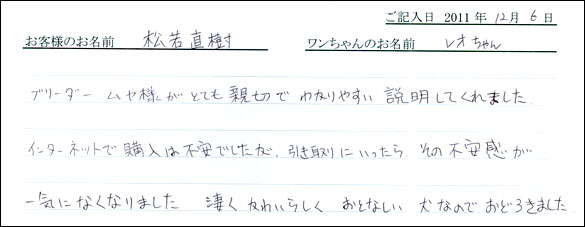 ご記入日 2011年 12月 6日
お客様のお名前 松若直樹 ワンちゃんのお名前 レオちゃん
ブリーダー ムヤ様がとても親切でわかりやすい説明してくれました.
インターネットで購入は不安でしたが、引き取りにいったら、その不安感が
一気になくなりました 凄くかわいらしく おとなしい 犬なのでおどろきました.